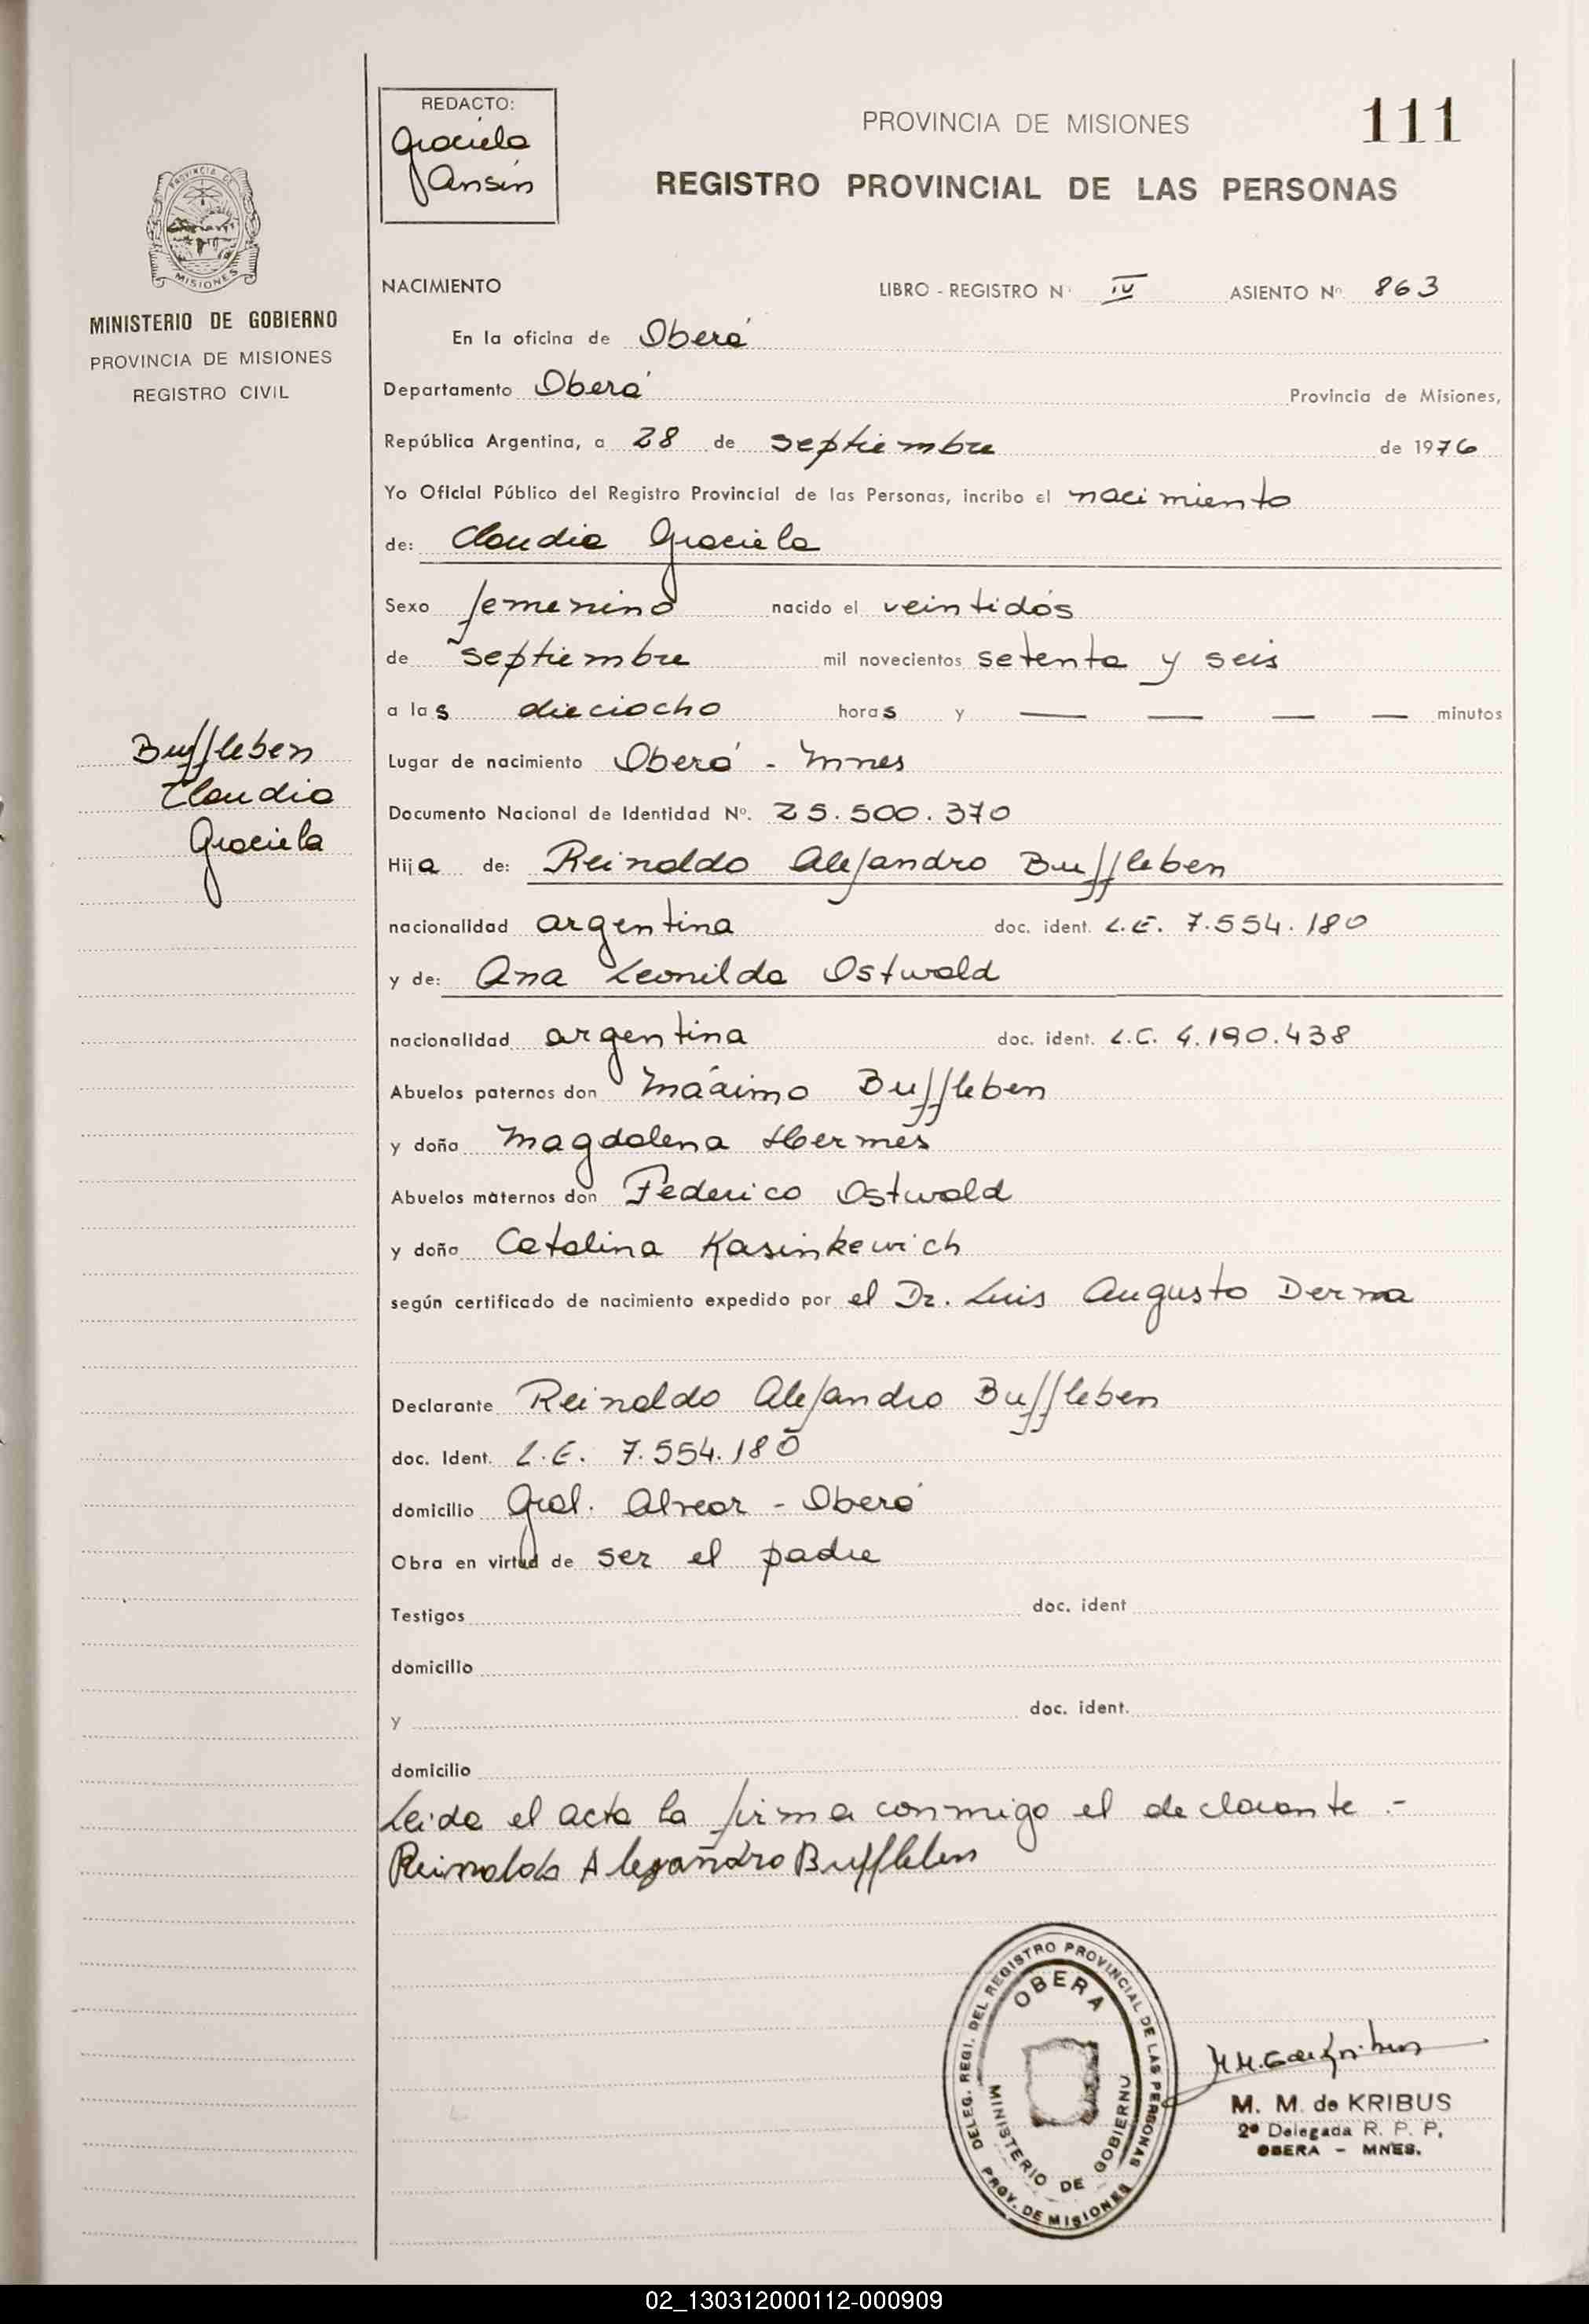 REDACTO:
Graciela
Ansin
PROVINCIA DE MISIONES
111
REGISTRO PROVINCIAL DE LAS PERSONAS
PROVINCIA DE
MISIONES
MINISTERIO DE GOBIERNO
PROVINCIA DE MISIONES
REGISTRO CIVIL
NACIMIENTO LIBRO - REGISTRO Nº IV ASIENTO Nº 863
En la oficina de Oberá
Departamento Oberá Provincia de Misiones,
República Argentina, a 28 de septiembre de 1976
Yo Oficial Público del Registro Provincial de las Personas, incribo el nacimiento
de: Claudia Graciela
Sexo femenino nacido el veintidós
de septiembre mil novecientos setenta y seis
a las dieciocho horas y — — — — minutos
Buffleben
Claudia
Graciela
Lugar de nacimiento Oberá - Mnes
Documento Nacional de Identidad Nº. 25.500.370
Hija de: Reinaldo Alejandro Buffleben
nacionalidad argentina doc. ident. L.E. 7.554.180
y de: Ana Leonilda Ostwald
nacionalidad argentina doc. ident. L.C. 4.190.438
Abuelos paternos don Máximo Buffleben
y doña Magdalena Hermes
Abuelos maternos don Federico Ostwald
y doña Catalina Kasinkewich
según certificado de nacimiento expedido por el Dr. Luis Augusto Derna
Declarante Reinaldo Alejandro Buffleben
doc. Ident. L.E. 7.554.180
domicilio Gral. Alvear - Oberá
Obra en virtud de ser el padre
Testigos doc. ident
domicilio
y doc. ident.
domicilio
Leida el acta la firma conmigo el declarante.-
Reinaldo Alejandro Buffleben
DELEG. REGI. DEL REGISTRO PROVINCIAL DE LAS PERSONAS
OBERA
MINISTERIO DE GOBIERNO
PROV. DE MISIONES
M. M. de KRIBUS
2ª Delegada R. P. P.
OBERA - MNES.
02_130312000112-000909